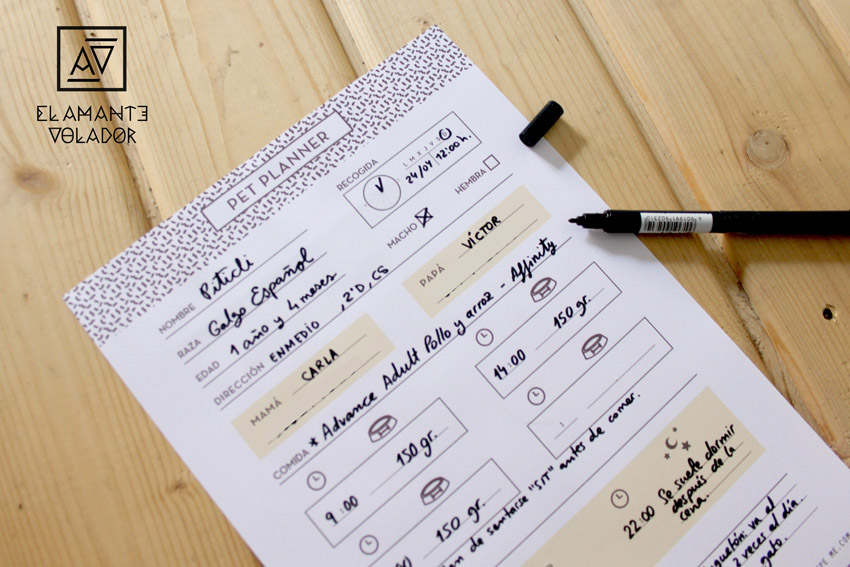 EL AMANTE
VOLADOR
PET PLANNER
RECOGIDA
L M X J V S
24/04 | 12:00 h.
NOMBRE Piticli
MACHO
HEMBRA
RAZA Galgo Español
EDAD 1 año y 4 meses
DIRECCIÓN ENMEDIO , 2ºD, CS
MAMÁ CARLA
PAPÁ VÍCTOR
COMIDA * Advance Adult Pollo y arroz - Affinity
9:00 150 gr.
14:00 150 gr.
150 gr.
:
de sentarse "SIT" antes de comer.
22:00 Se suele dormir
después de la
cena.
va al
2 veces al día.
gato.